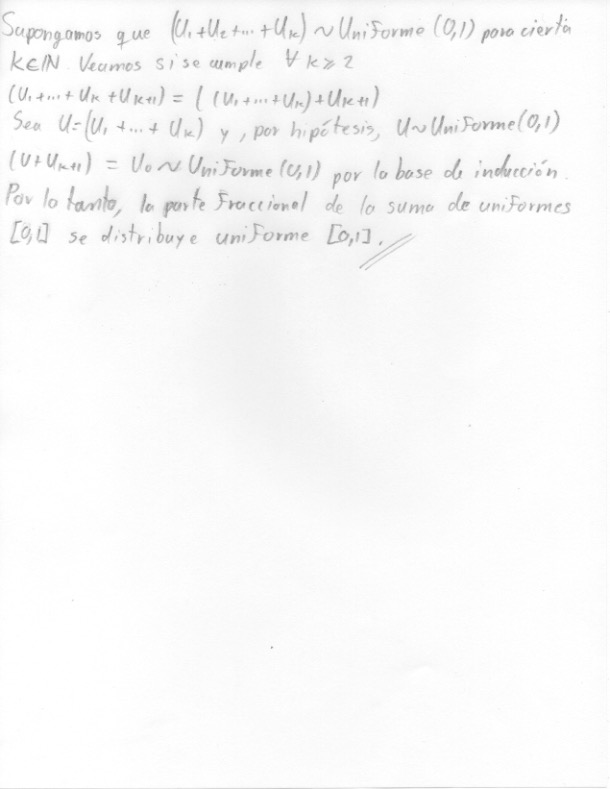 Supongamos que (U₁+U₂+...+Uₖ) ~ Uniforme (0,1) para cierta
K∈ℕ. Veamos si se cumple ∀ k ≥ 2
(U₁+...+Uₖ+Uₖ₊₁) = ( (U₁+...+Uₖ)+Uₖ₊₁)
Sea U=(U₁+...+Uₖ) y, por hipótesis, U~Uniforme(0,1)
(U+Uₖ₊₁) = U₀ ~ Uniforme (0,1) por la base de inducción.
Por lo tanto, la parte Fraccional de la suma de uniformes
[0,1] se distribuye uniforme [0,1].